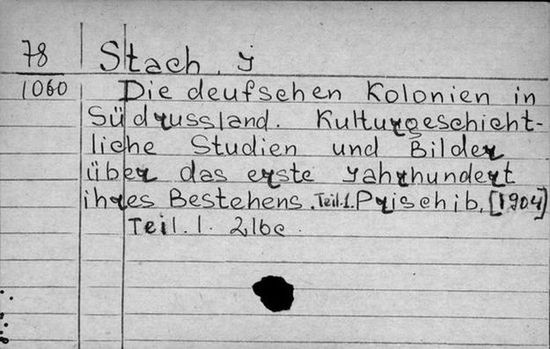 78 Stach, J
1060 Die deutschen Kolonien in
Südrussland. Kulturgeschicht-
liche Studien und Bilder
über das erste Jahrhundert
ihres Bestehens. Teil.1. Prischib, [1904]
Teil. 1. 216c.